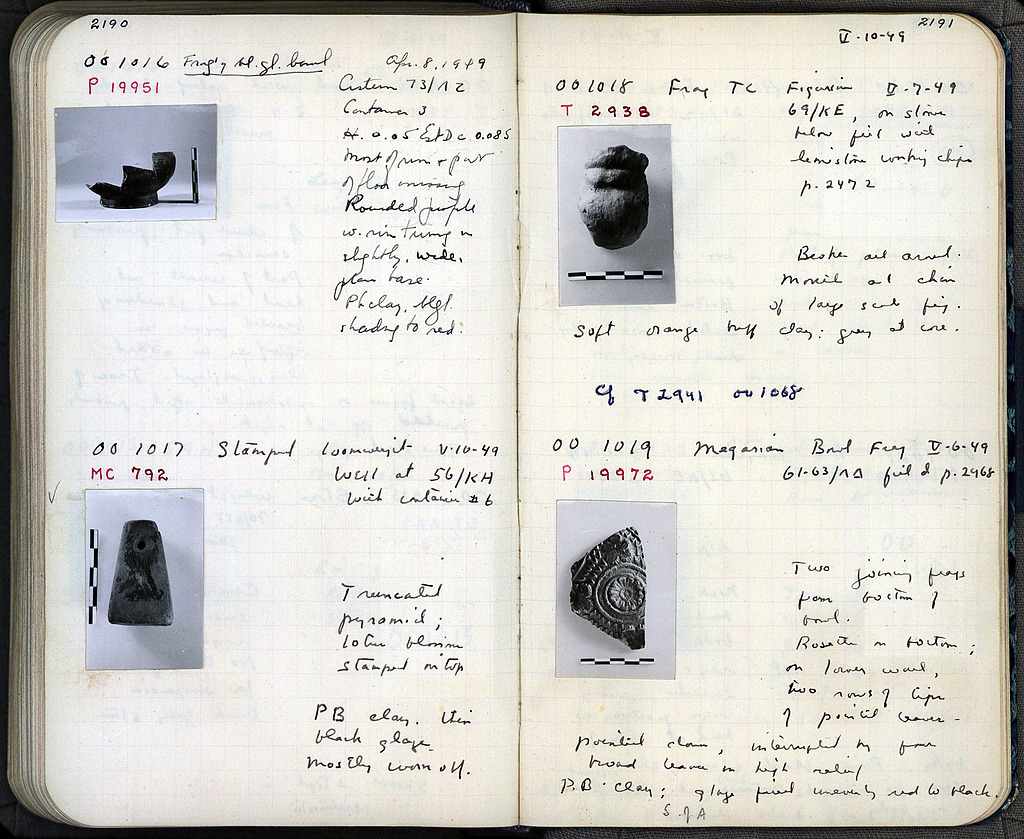 2190
OO 1016 Frag'y bl. gl. bowl Apr. 8, 1949
P 19951
Cistern 73/ΛΖ
Container 3
H. 0.05 Est D c. 0.085
Most of rim & part
of floor missing
Rounded profile
w. rim turning in
slightly, wide,
plain base.
Pk clay, bl gl.
shading to red.
OO 1017 Stamped loomweight V-10-49
MC 792
Well at 56/ΚΗ
with container #6
Truncated
pyramid;
lotus blossom
stamped on top
PB clay. thin
black glaze.
mostly worn off.
2191
V-10-49
OO 1018 Frag TC Figurine V-7-49
T 2938
69/ΚΕ, on stone
below fill with
limestone working chips
p. 2472
Broken all around.
Mouth and chin
of large scale fig.
Soft orange buff clay: grey at core.
Cf T 2941 OO 1068
OO 1019 Megarian Bowl Frag V-6-49
P 19972
61-63/ΛΔ fill d p. 2468
Two joining frags
from bottom of
bowl.
Rosette on bottom;
on lower wall,
two rows of tips
of pointed leaves -
pointed down, interrupted by four
broad leaves in high relief
P.B. clay; glaze fired unevenly red to black.
S. of A